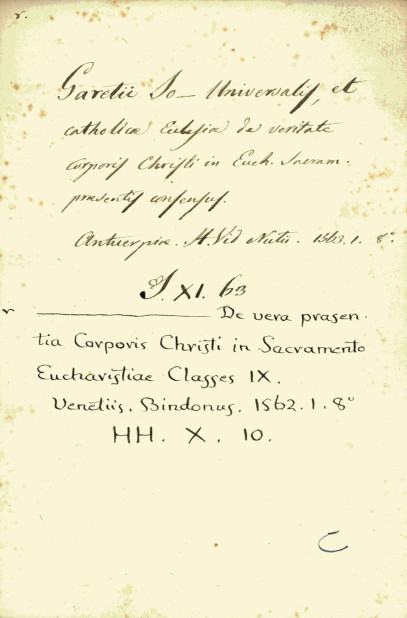 r.
Garetii Jo— Universalis, et
catholicæ Eclesiæ de veritate
corporis Christi in Euch. Sacram.
presentis consensus.
Antuerpiæ. H. Vid Nutii. 1563. 1. 8°
J. XI. 63
r ——— De vera præsen.
tia Corporis Christi in Sacramento
Eucharistiae Classes IX.
Venetiis. Bindonus. 1562. 1. 8°
HH. X. 10.
C